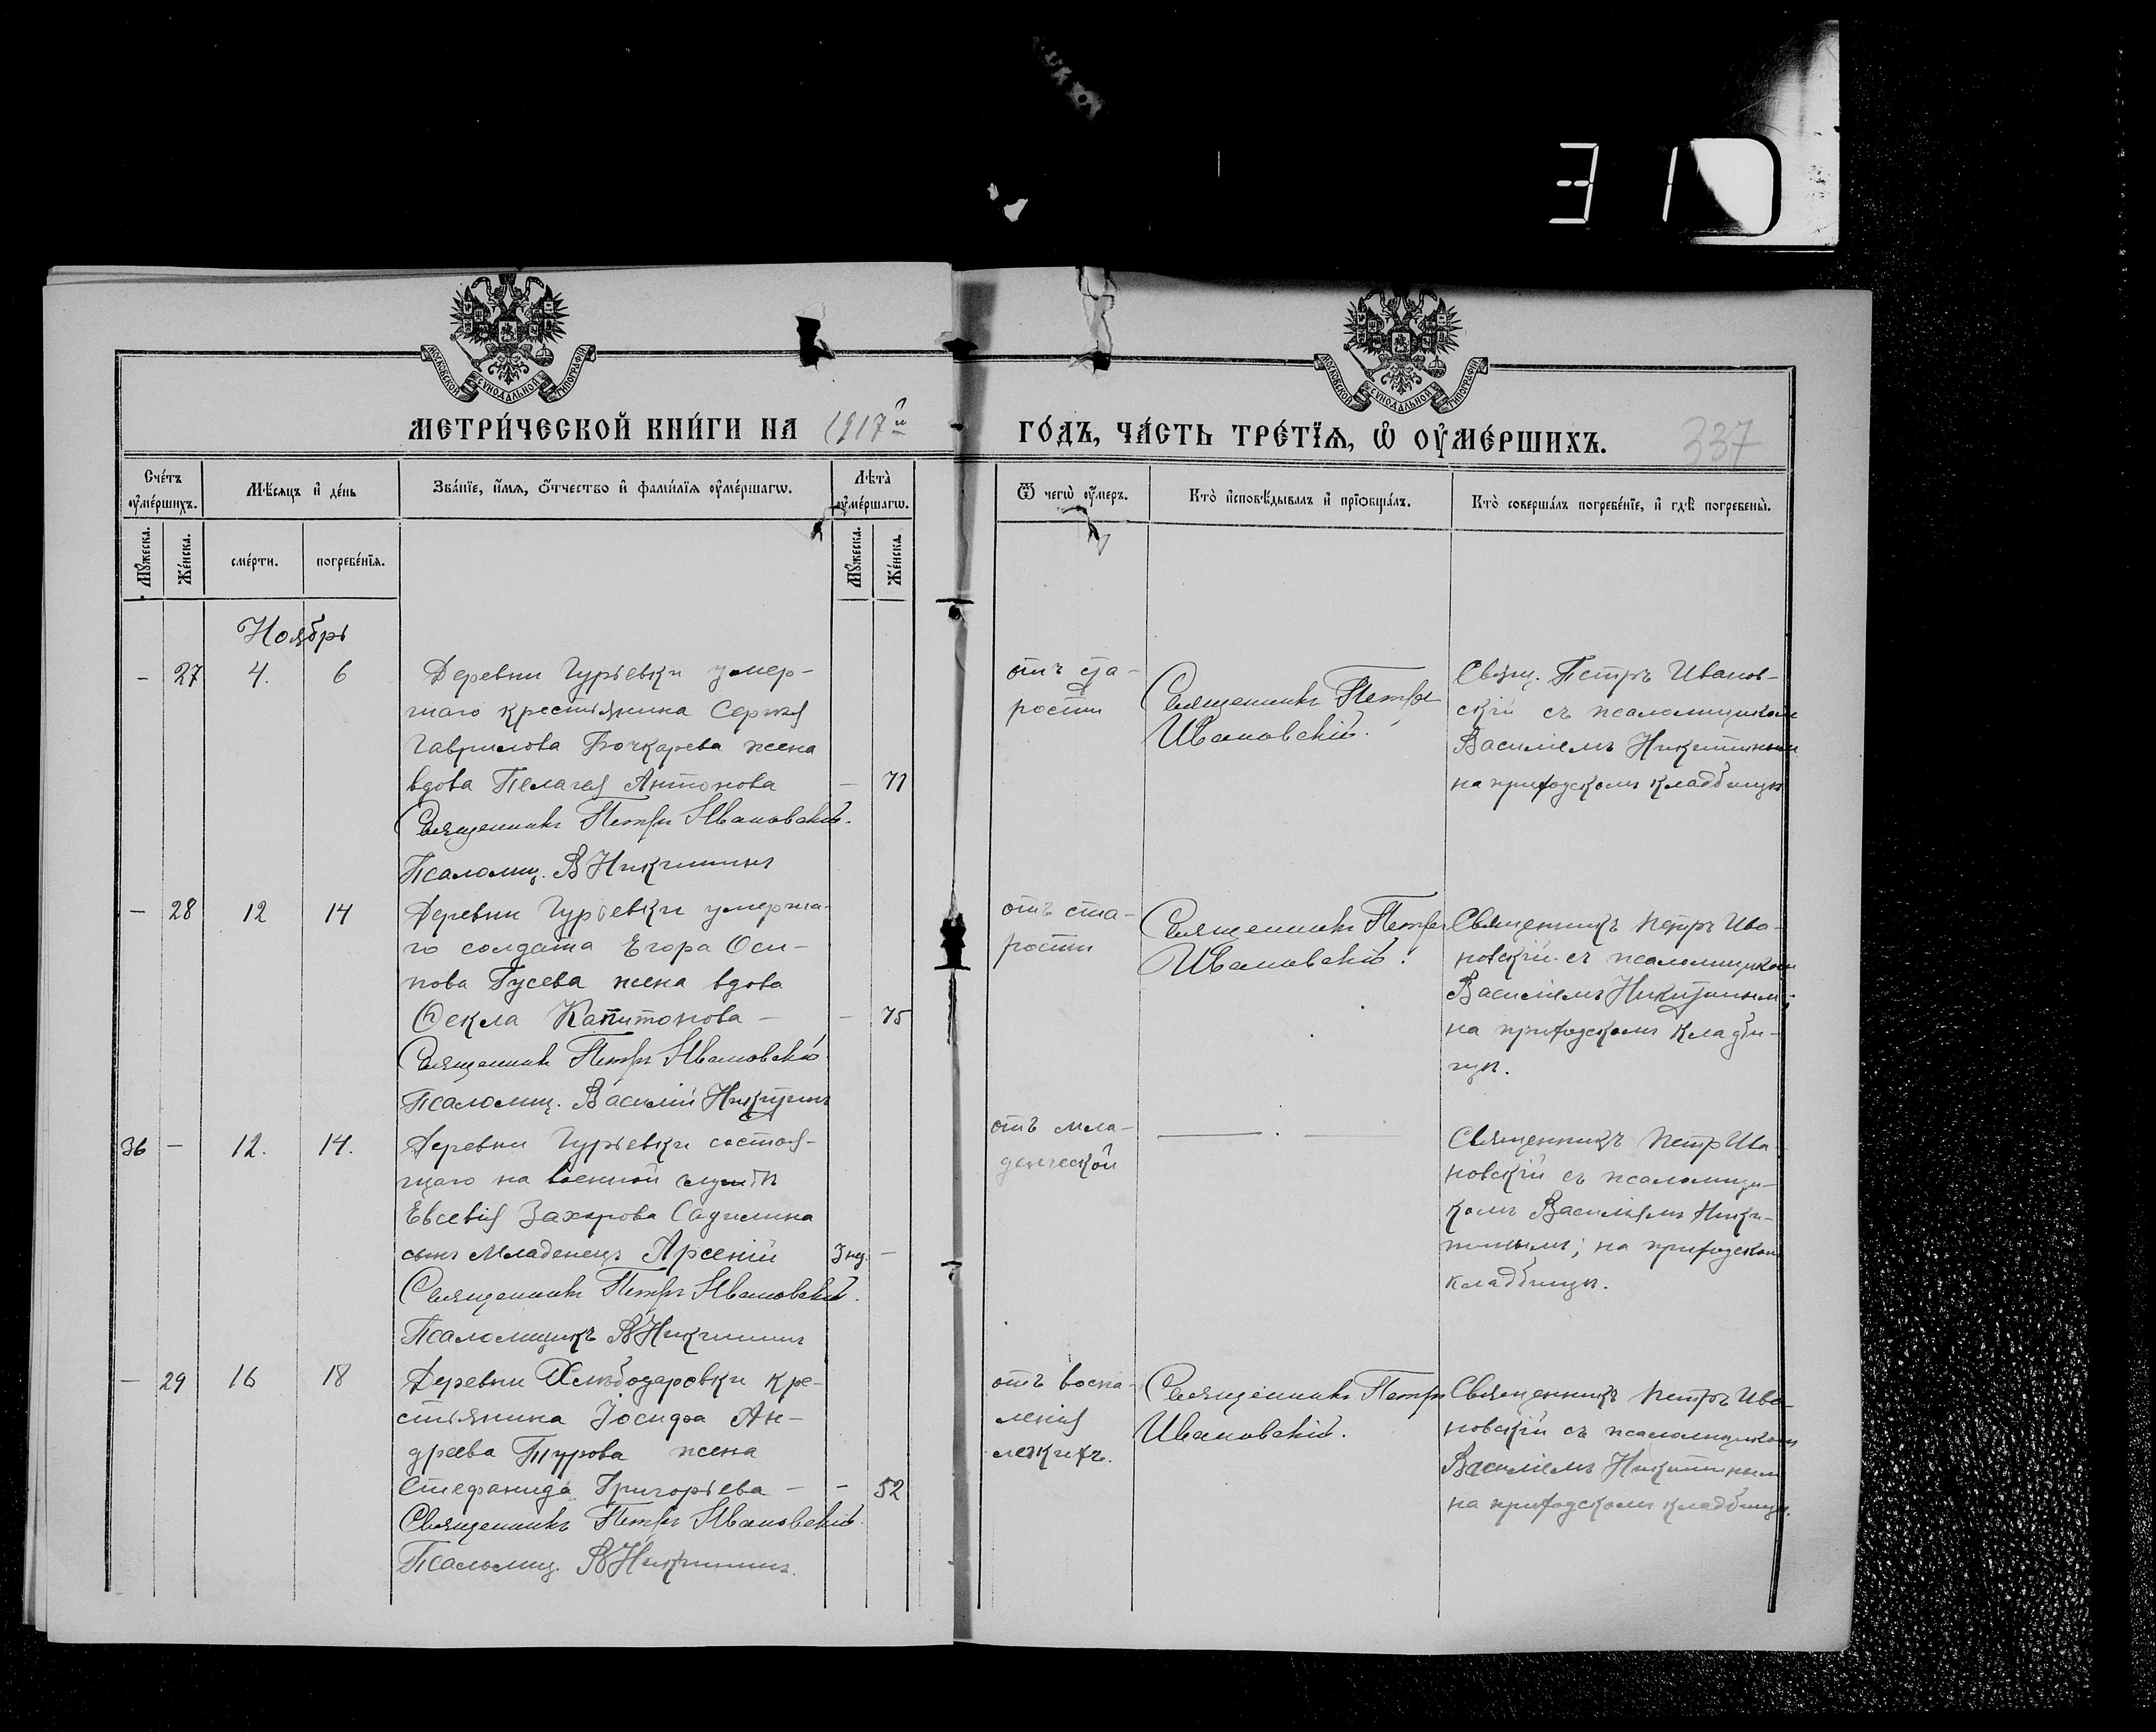 310
МОСКОВСКОЙ СѴНОДАЛЬНОЙ ТИПОГРАФІИ
МОСКОВСКОЙ СѴНОДАЛЬНОЙ ТИПОГРАФІИ
МЕТРИ́ЧЕСКОЙ КНИ́ГИ НА 1917й
ГО́ДЪ, ЧА́СТЬ ТРЕ́ТІѦ, Ѡ҆ ОУ҆МЕ́РШИХЪ.
337
Сче́тъ оу҆ме́ршихъ.
Мѣ́сѧцъ и҆ де́нь
Зва́нїе, и҆́мѧ, ѻ҆́тчество и҆ фами́лїѧ оу҆ме́ршагѡ.
Лѣта̀ оу҆ме́ршагѡ.
Ѿ чегѡ̀ оу҆́меръ.
Кто̀ и҆сповѣ́дывалъ и҆ прїѡбща́лъ.
Кто̀ соверша́лъ погребе́нїе, и҆ гдѣ̀ погребены̀.
Мꙋ́жеска.
Же́нска.
сме́рти.
погребе́нїѧ.
Мꙋ́жеска.
Же́нска.
Ноябрь
- 27 4. 6
Деревни Гурьевки умер-
шаго крестьянина Сергея
Гаврилова Бочкарева жена
вдова Пелагея Антонова — 71
Священникъ Петръ Ивановскій.
Псаломщ. В Никитинъ
отъ ста-
рости
Священникъ Петръ
Ивановскій.
Свящ. Петръ Иванов-
скій съ псаломщикомъ
Василіемъ Никитинымъ
на приходскомъ кладбищѣ
— 28 12 14
Деревни Гурьевки умерша-
го солдата Егора Оси-
пова Гусева жена вдова
Ѳекла Капитонова — — 75
Священникъ Петръ Ивановскій
Псаломщ. Василій Никитинъ
отъ ста-
рости
Священникъ Петръ
Ивановскій.
Священникъ Петръ Ива-
новскій съ псаломщикомъ
Василіемъ Никитинымъ;
на приходскомъ кладби-
щѣ.
36 — 12. 14.
Деревни Гурьевки состоя-
щаго на военной службѣ
Евсевія Захарова Садилина
сынъ Младенецъ Арсеній 3 нед. —
Священникъ Петръ Ивановскій.
Псаломщикъ В Никитинъ
отъ мла-
денческой
Священникъ Петръ Ива-
новскій съ псаломщи-
комъ Василіемъ Ники-
тинымъ; на приходскомъ
кладбищѣ.
— 29 16 18
Деревни Хлѣбодаровки кре-
стьянина Іосифа Ан-
дреева Турова жена
Стефанида Григорьева — - 52
Священникъ Петръ Ивановскій.
Псаломщ. В Никитинъ.
отъ воспа-
ленія
легкихъ.
Священникъ Петръ
Ивановскій.
Священникъ Петръ Ива-
новскій съ псаломщикомъ
Василіемъ Никитинымъ
на приходскомъ кладбищѣ.